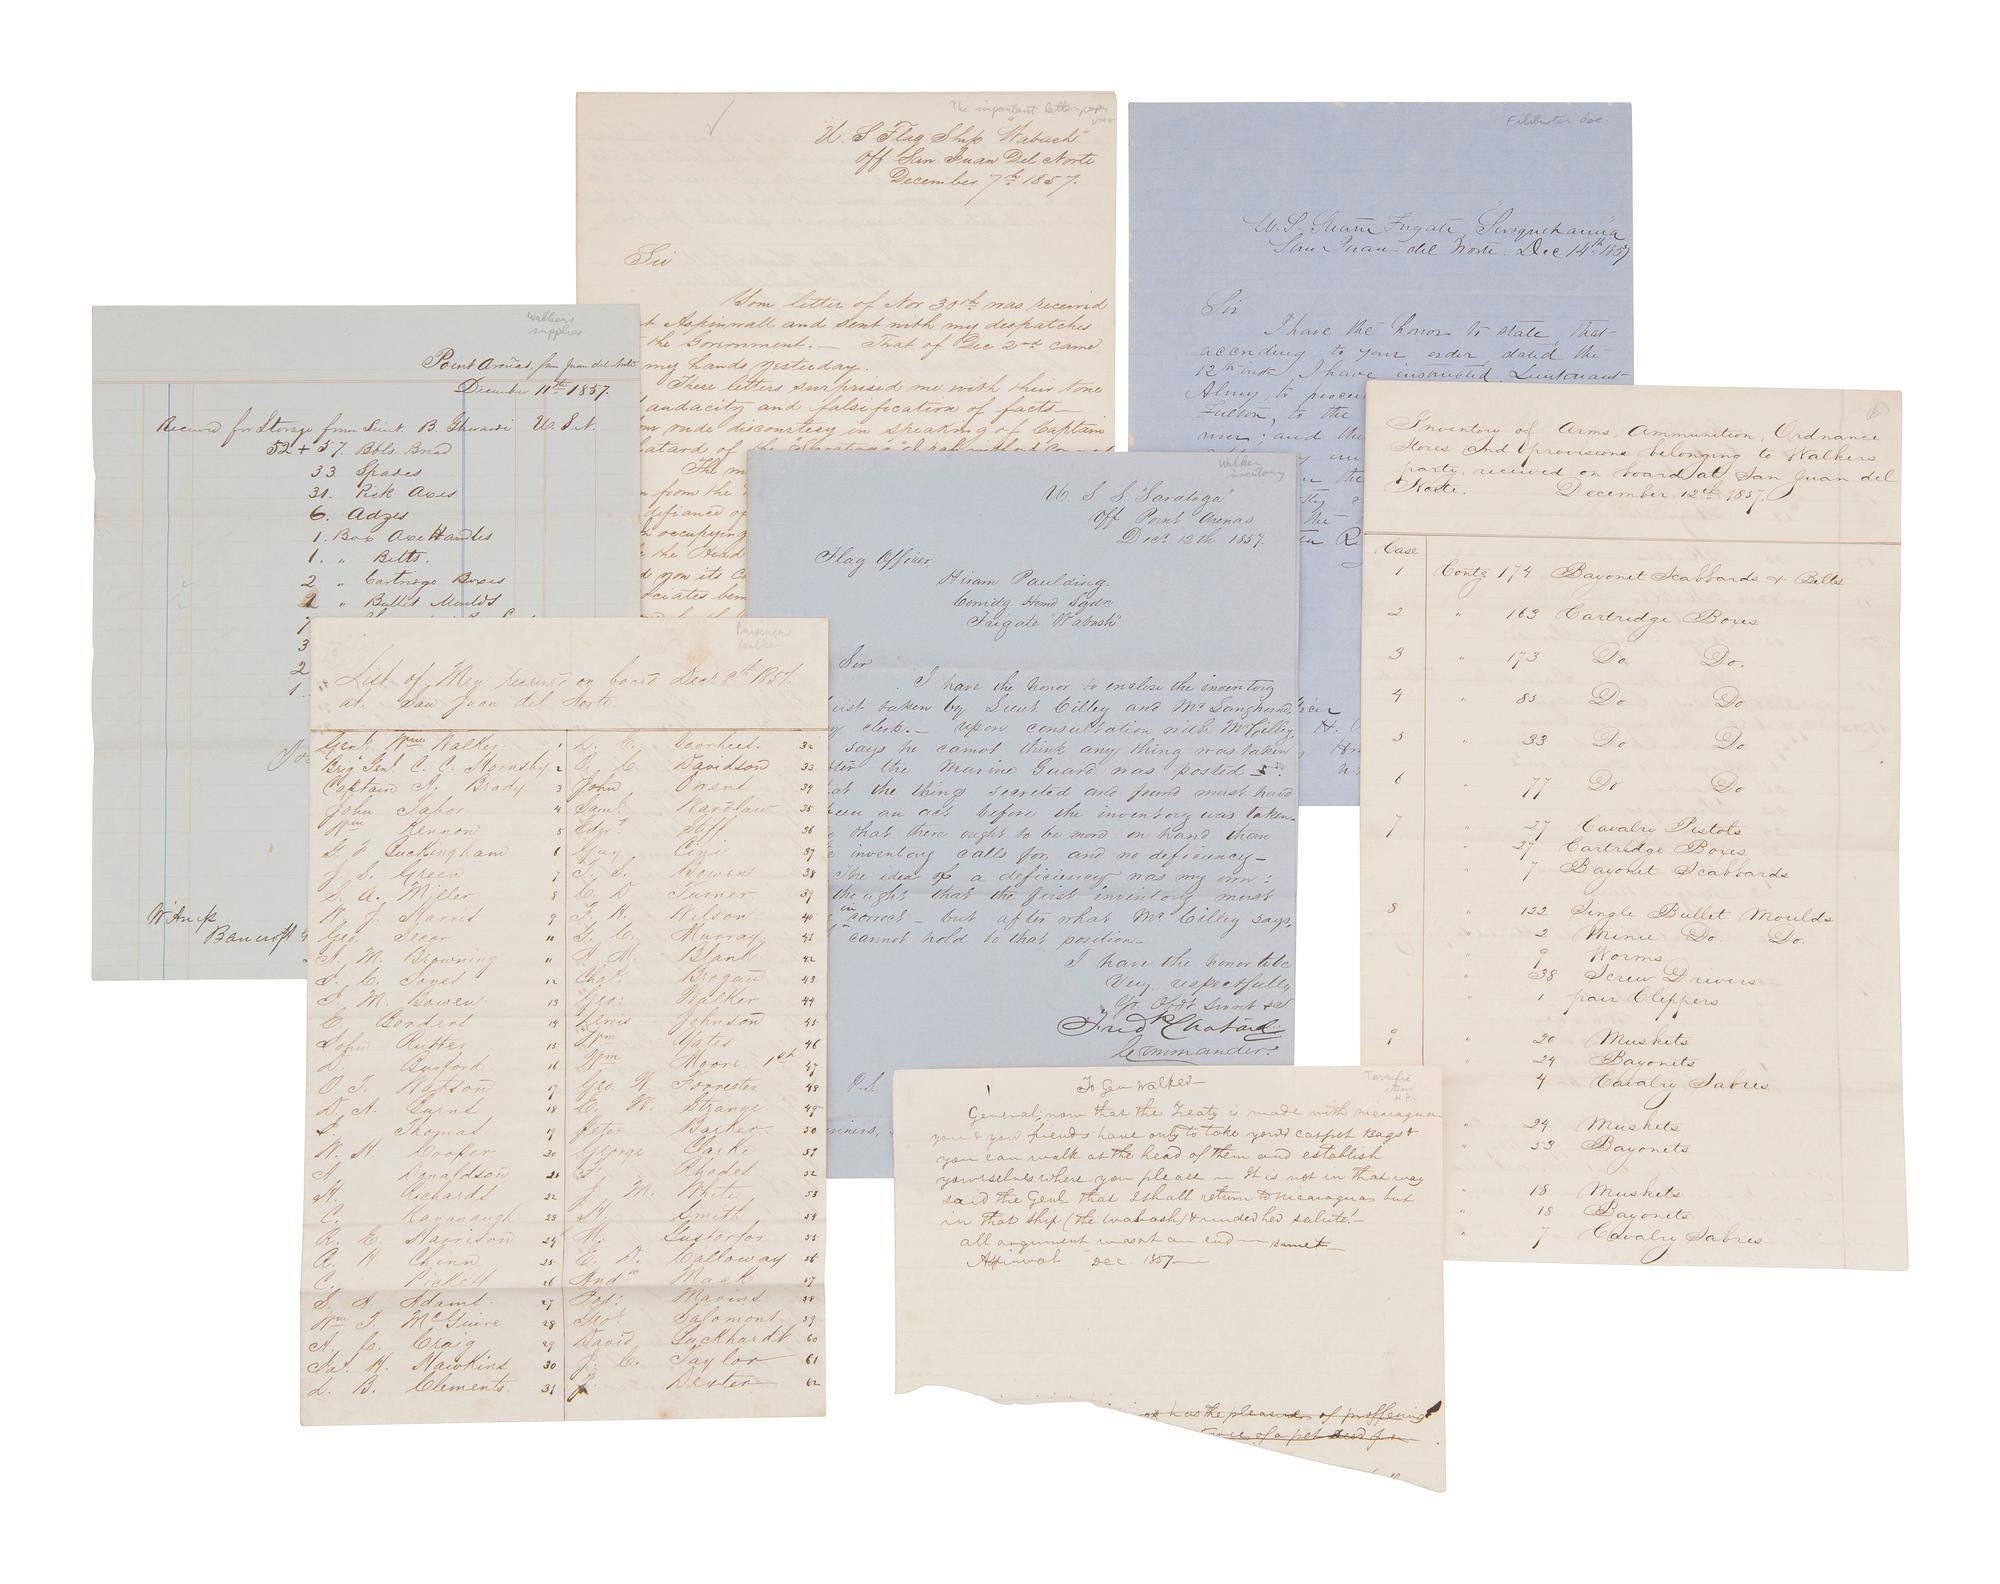 The important letter, copy
U. S Flag Ship "Wabash"
Off San Juan Del Norte
December 7th 1857.
Sir
Your letter of Nov 30th was received
t Aspinwall and sent with my despatches
the Government. — That of Dec 2nd came
my hands yesterday.
These letters surprised me with their tone
audacity and falsification of facts —
rude discourtesy in speaking of Captain
atard of the "Saratoga" I pass without
The m
from the
defiance of
occupying
the Head
you its C
ciates
Filibuster doc.
U. S. Steam Frigate, "Susquehanna"
San Juan del Norte. Dec 14th 1857
Sir
I have the honor to state, that
according to your order, dated the
12th inst, I have instructed Lieutenant
Almy, to
Fulton, to the
; and the
the
the
Walker's
supplies
Point Arenas, San Juan del Norte
December 11th 1857.
Received for Storage from Lieut. B. Gherardi U. S. N.
52 + 57. Bbls. Bread
33 Spades
31. Pick Axes
6. Adzes
1. Box Axe Handles
1. " Belts.
2 " Cartridge Boxes
2 " Bullet Moulds
7
3
2
1.
Bancroft G
Walker
inventory
U. S. S. "Saratoga"
Off Point Arenas
Dec. 12th 1857.
Flag Officer,
Hiram Paulding.
Comdg Home Sqdn
Frigate "Wabash"
Sir
I have the honor to enclose the inventory
ist taken by Lieut. Cilley and Mr Langhorne,
y clerk. — Upon consultation with Mr Cilley,
says he cannot think any thing was taken
fter the Marine Guard was posted
at the things secreted and found must have
een an act before the inventory was taken —
that there ought to be more on hand than
e inventory calls for, and no deficiency —
The idea of a deficiency was my own:
thought that the first inventory must
in correct — but after what Mr Cilley says,
cannot hold to that position —
I have the honor to be
Very respectfully,
Yr Obdt Servt &c
Fredk Chatard
Commander.
P.S
Inventory of Arms, Ammunition, Ordnance
Stores and provisions belonging to Walkers
party, received on board at San Juan del
Norte. December 12th 1857.
Case
1 Contg 174 Bayonet Scabbards & Belts
2 " 163 Cartridge Boxes
3 " 173 Do Do.
4 " 85 Do Do
5 " 33 Do Do
6 " 77 Do Do
7 " 27 Cavalry Pistols
" 27 Cartridge Boxes
" 7 Bayonet Scabbards
8 " 122 Single Bullet Moulds
" 2 Minie Do. Do.
" 9 Worms
" 38 Screw Drivers
" 1 pair Clippers
9 " 20 Muskets
" 24 Bayonets
" 4 Cavalry Sabres
" 24 Muskets
" 53 Bayonets
" 18 Muskets
" 18 Bayonets
" 7 Cavalry Sabres
Prisoners
Walker
List of Men received on board Decr 8th 1857.
at San Juan del Norte.
Genl. Wm Walker. 1
Brig Genl. C. C. Hornsby 2
Captain A. Brady. 3
John Tabor 4
Wm Kennon 5
G. V Buckingham 6
J. S. Green 7
S. A. Miller 8
W. J. Harris 9
Geo. 
A. M. Browning 11
J. C. Jones 12
J. M. Bowen 13
E. Bordert 14
John Rutter 15
L. Buxford 16
O. T. Watson 17
D. A. Curns 18
L. Thomas 19
W. H. Cooper 20
A. Donaldson 21
H. Richards 22
C. Kavanaugh 23
R. E. Harrison 24
A. H Chinn 25
C. Pickett 26
S. A. Adams. 27
Wm T. McGuire 28
A. C. Craig 29
Jas. H. Hawkins 30
L. B. Clements. 31
D. C. Voorhees. 32
C. Davidson 33
John Owens 34
Saml. Wardlaw 35
Edwd Stiff 36
Guy 37
T. S. Bowen 38
C. D. Turner 39
F. H. Wilson 40
G. C. Murray. 41
A. M. Blank 42
Chas. Brogan 43
Geo: Walker 44
Lewis Johnson 45
Wm Yates 46
Wm Moore 1st 47
Geo. W Forrester 48
E. W. Strange. 49
Peter Backer. 50
George Clarke 51
F. Rhodes 52
J. M. White 53
H. Smith 54
H. Gustorfor 55
E. D. Calloway 56
Andw Mack 57
Jos: Marins 58
Geo. Salomont 59
David Luckhardt 60
J. C. Taylor 61
J. Dexter 62
Terrific
item
H.P.
To Gen Walker —
General, now that the Treaty is made with nicaragua
you & your friends have only to take your carpet Bags &
you can walk at the head of them and establish
yourselves where you please — It is not in that way
said the Genl that I shall return to nicaragua but
in that ship (the wabash) & under her salute! —
all argument was at an end —
Aspinwall Dec. 1857 —
has the pleasure of proffering
of a pet